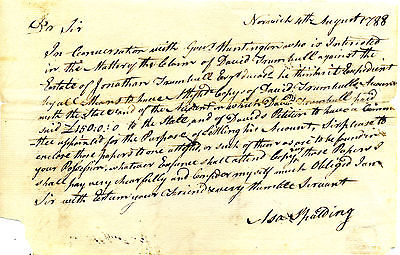 Norwich 11th August 1788
Dr Sir
In Conversation with Govr Huntington who is Interested
in the Matter of the Claim of David Trumbull against the
Estate of Jonathan Trumbull Esqr he thinks it Expedient
to have Copy of David Trumbulls Account
with the State and of the in which David Trumbull paid
said £150:0:0 to the State and of Davids Petition to have a Comm
tee appointed for the Purpose of Settling his Account, Sir please to
enclose those papers to me attested or such of them as are to be found in
your Possession, whatever Expense shall attend Copying those Papers I
shall pay very chearfully and Consider my self much Obliged I am
Sir with Esteem your Friend & very Humble Servant
Asa Spalding